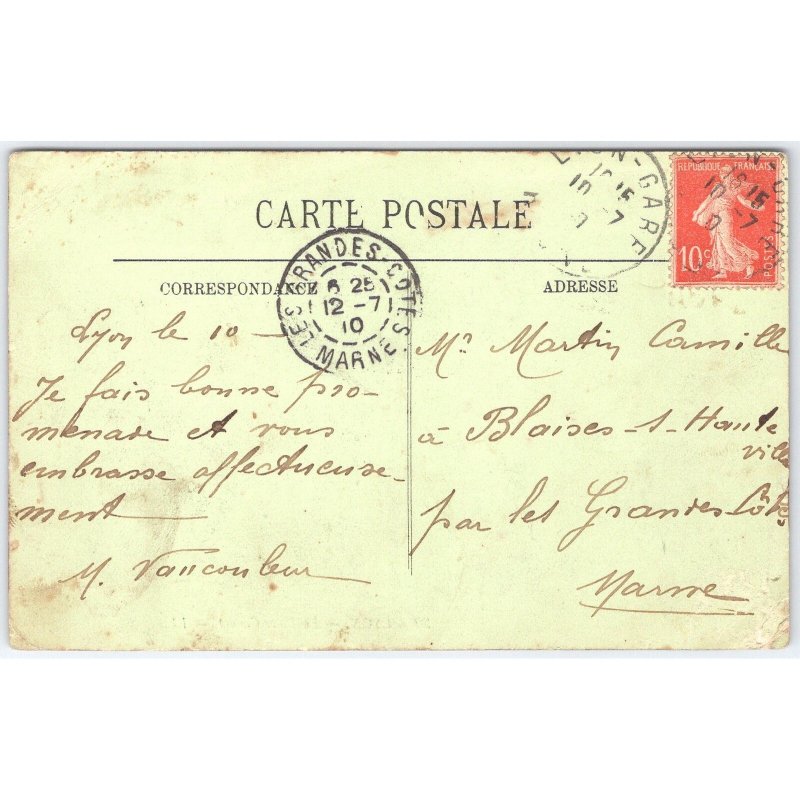 CARTE POSTALE
CORRESPONDANCE
ADRESSE
LYON-GARE
10 15
10 -7
REPUBLIQUE FRANÇAISE
10c
POSTES
LES GRANDES-CÔTES
6 25
12 -7
10
MARNE
Lyon le 10 -
Je fais bonne pro-
menade et vous
embrasse affectueuse-
ment
M. Vaucouleur
Mr Martin Camille
à Blaises-s-Haute
ville
par les Grandes Côtes
Marne